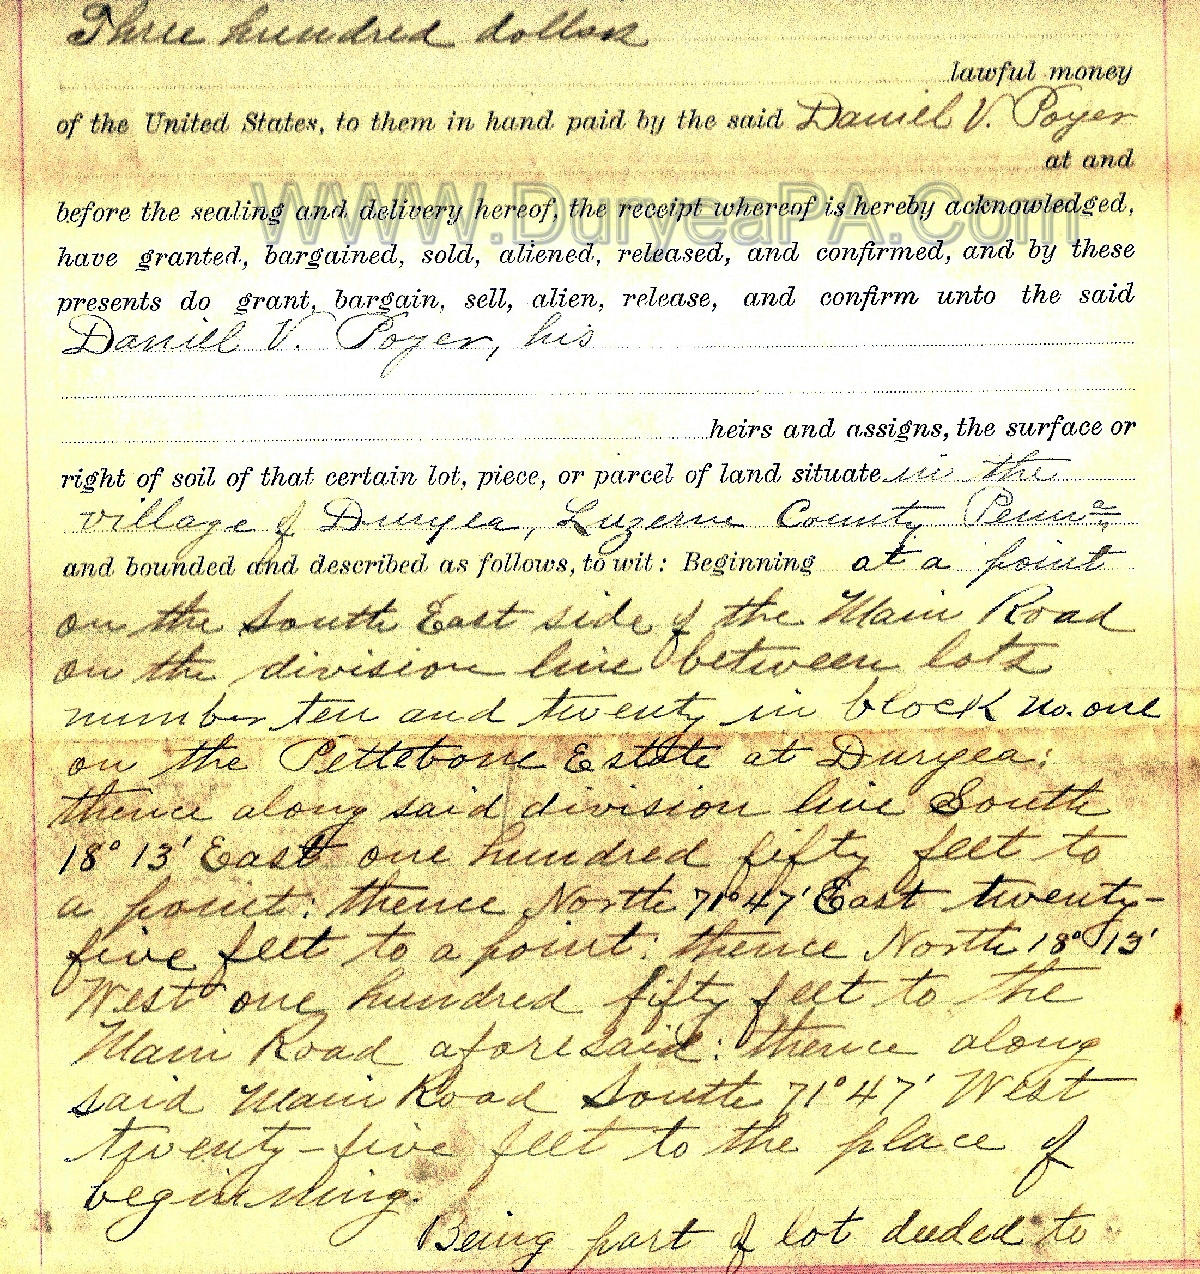 Three hundred dollars
lawful money
of the United States, to them in hand paid by the said Daniel V. Poyer
at and
WWW.DuryeaPA.Com
before the sealing and delivery hereof, the receipt whereof is hereby acknowledged,
have granted, bargained, sold, aliened, released, and confirmed, and by these
presents do grant, bargain, sell, alien, release, and confirm unto the said
Daniel V. Poyer, his
heirs and assigns, the surface or
right of soil of that certain lot, piece, or parcel of land situate in the
village of Duryea, Luzerne County Penna,
and bounded and described as follows, to wit: Beginning at a point
on the South East side of the Main Road
on the division line between lots
number ten and twenty in block no. one
on the Pettebone Estate at Duryea;
thence along said division line South
18° 13' East one hundred fifty feet to
a point: thence North 71° 47' East twenty-
five feet to a point: thence North 18° 13'
West one hundred fifty feet to the
Main Road aforesaid: thence along
said Main Road South 71° 47' West
twenty-five feet to the place of
beginning.
Being part of lot deeded to